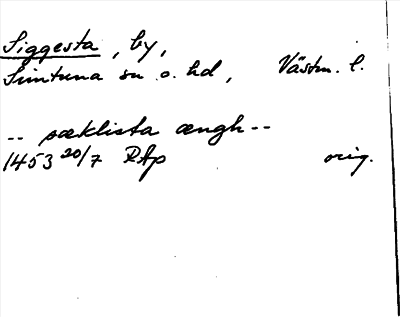 Siggesta, by,
Simtuna sn o. hd, Västm. l.
-- sæklista ængh --
1453 20/7 RAp orig.